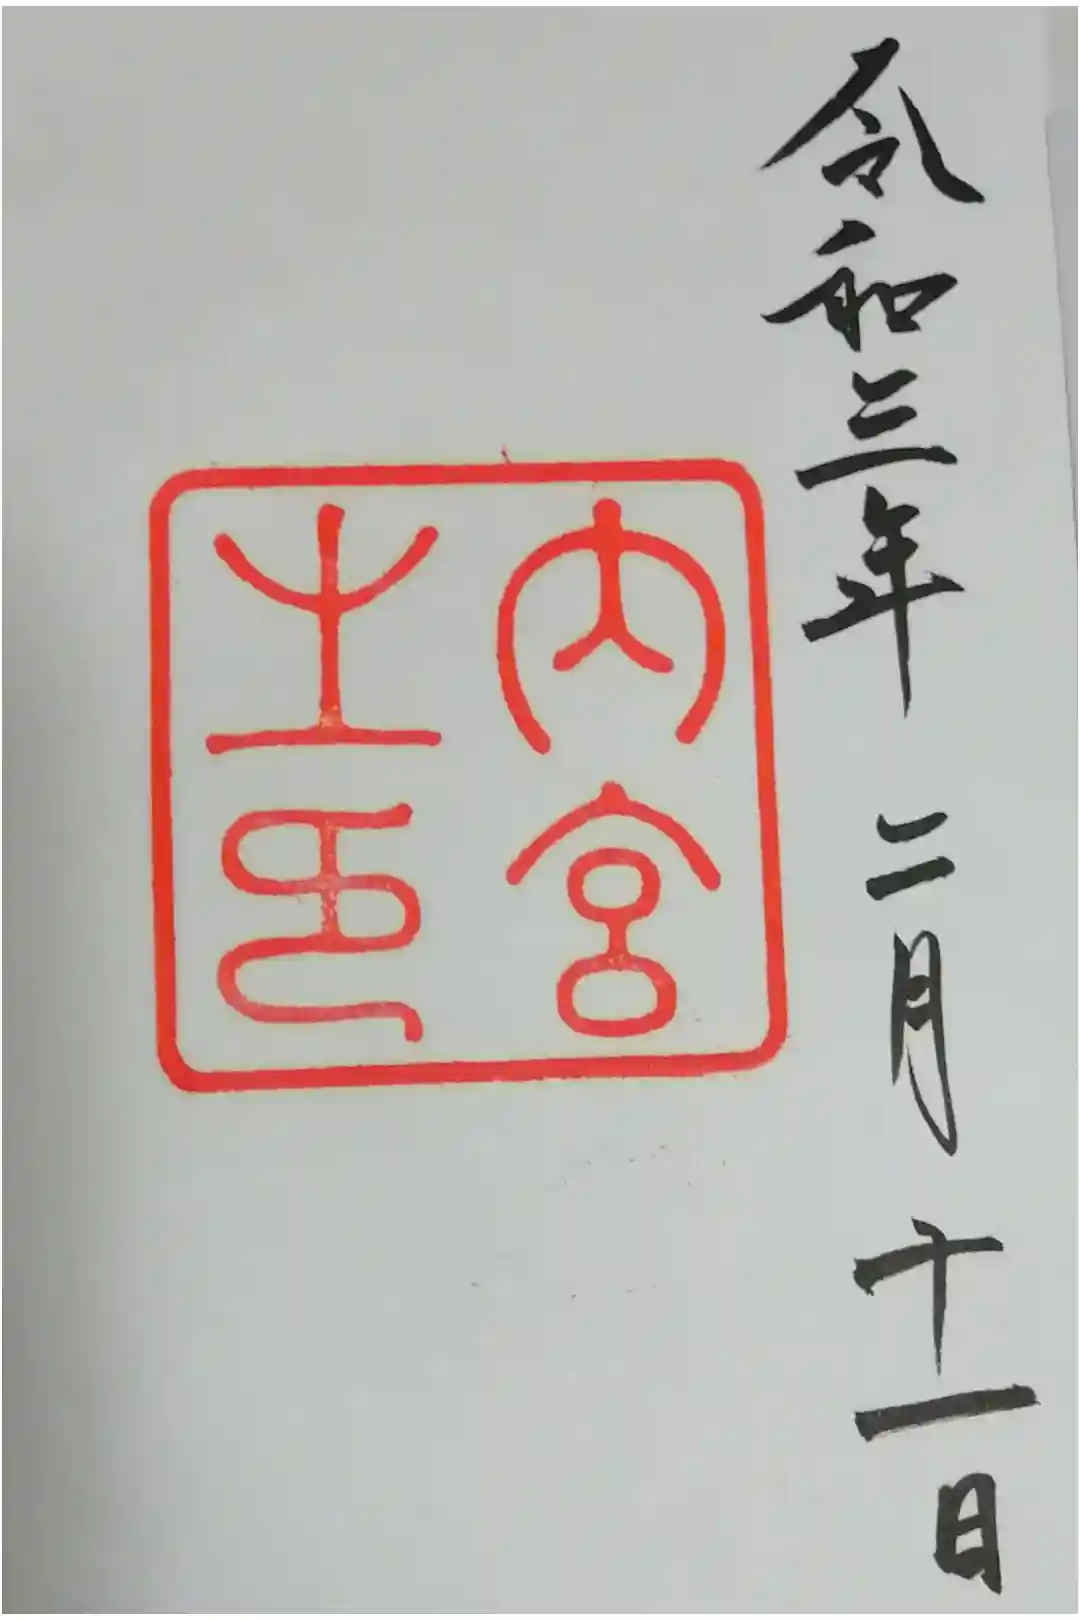 令和三年 二月 十一日
内宮
之印